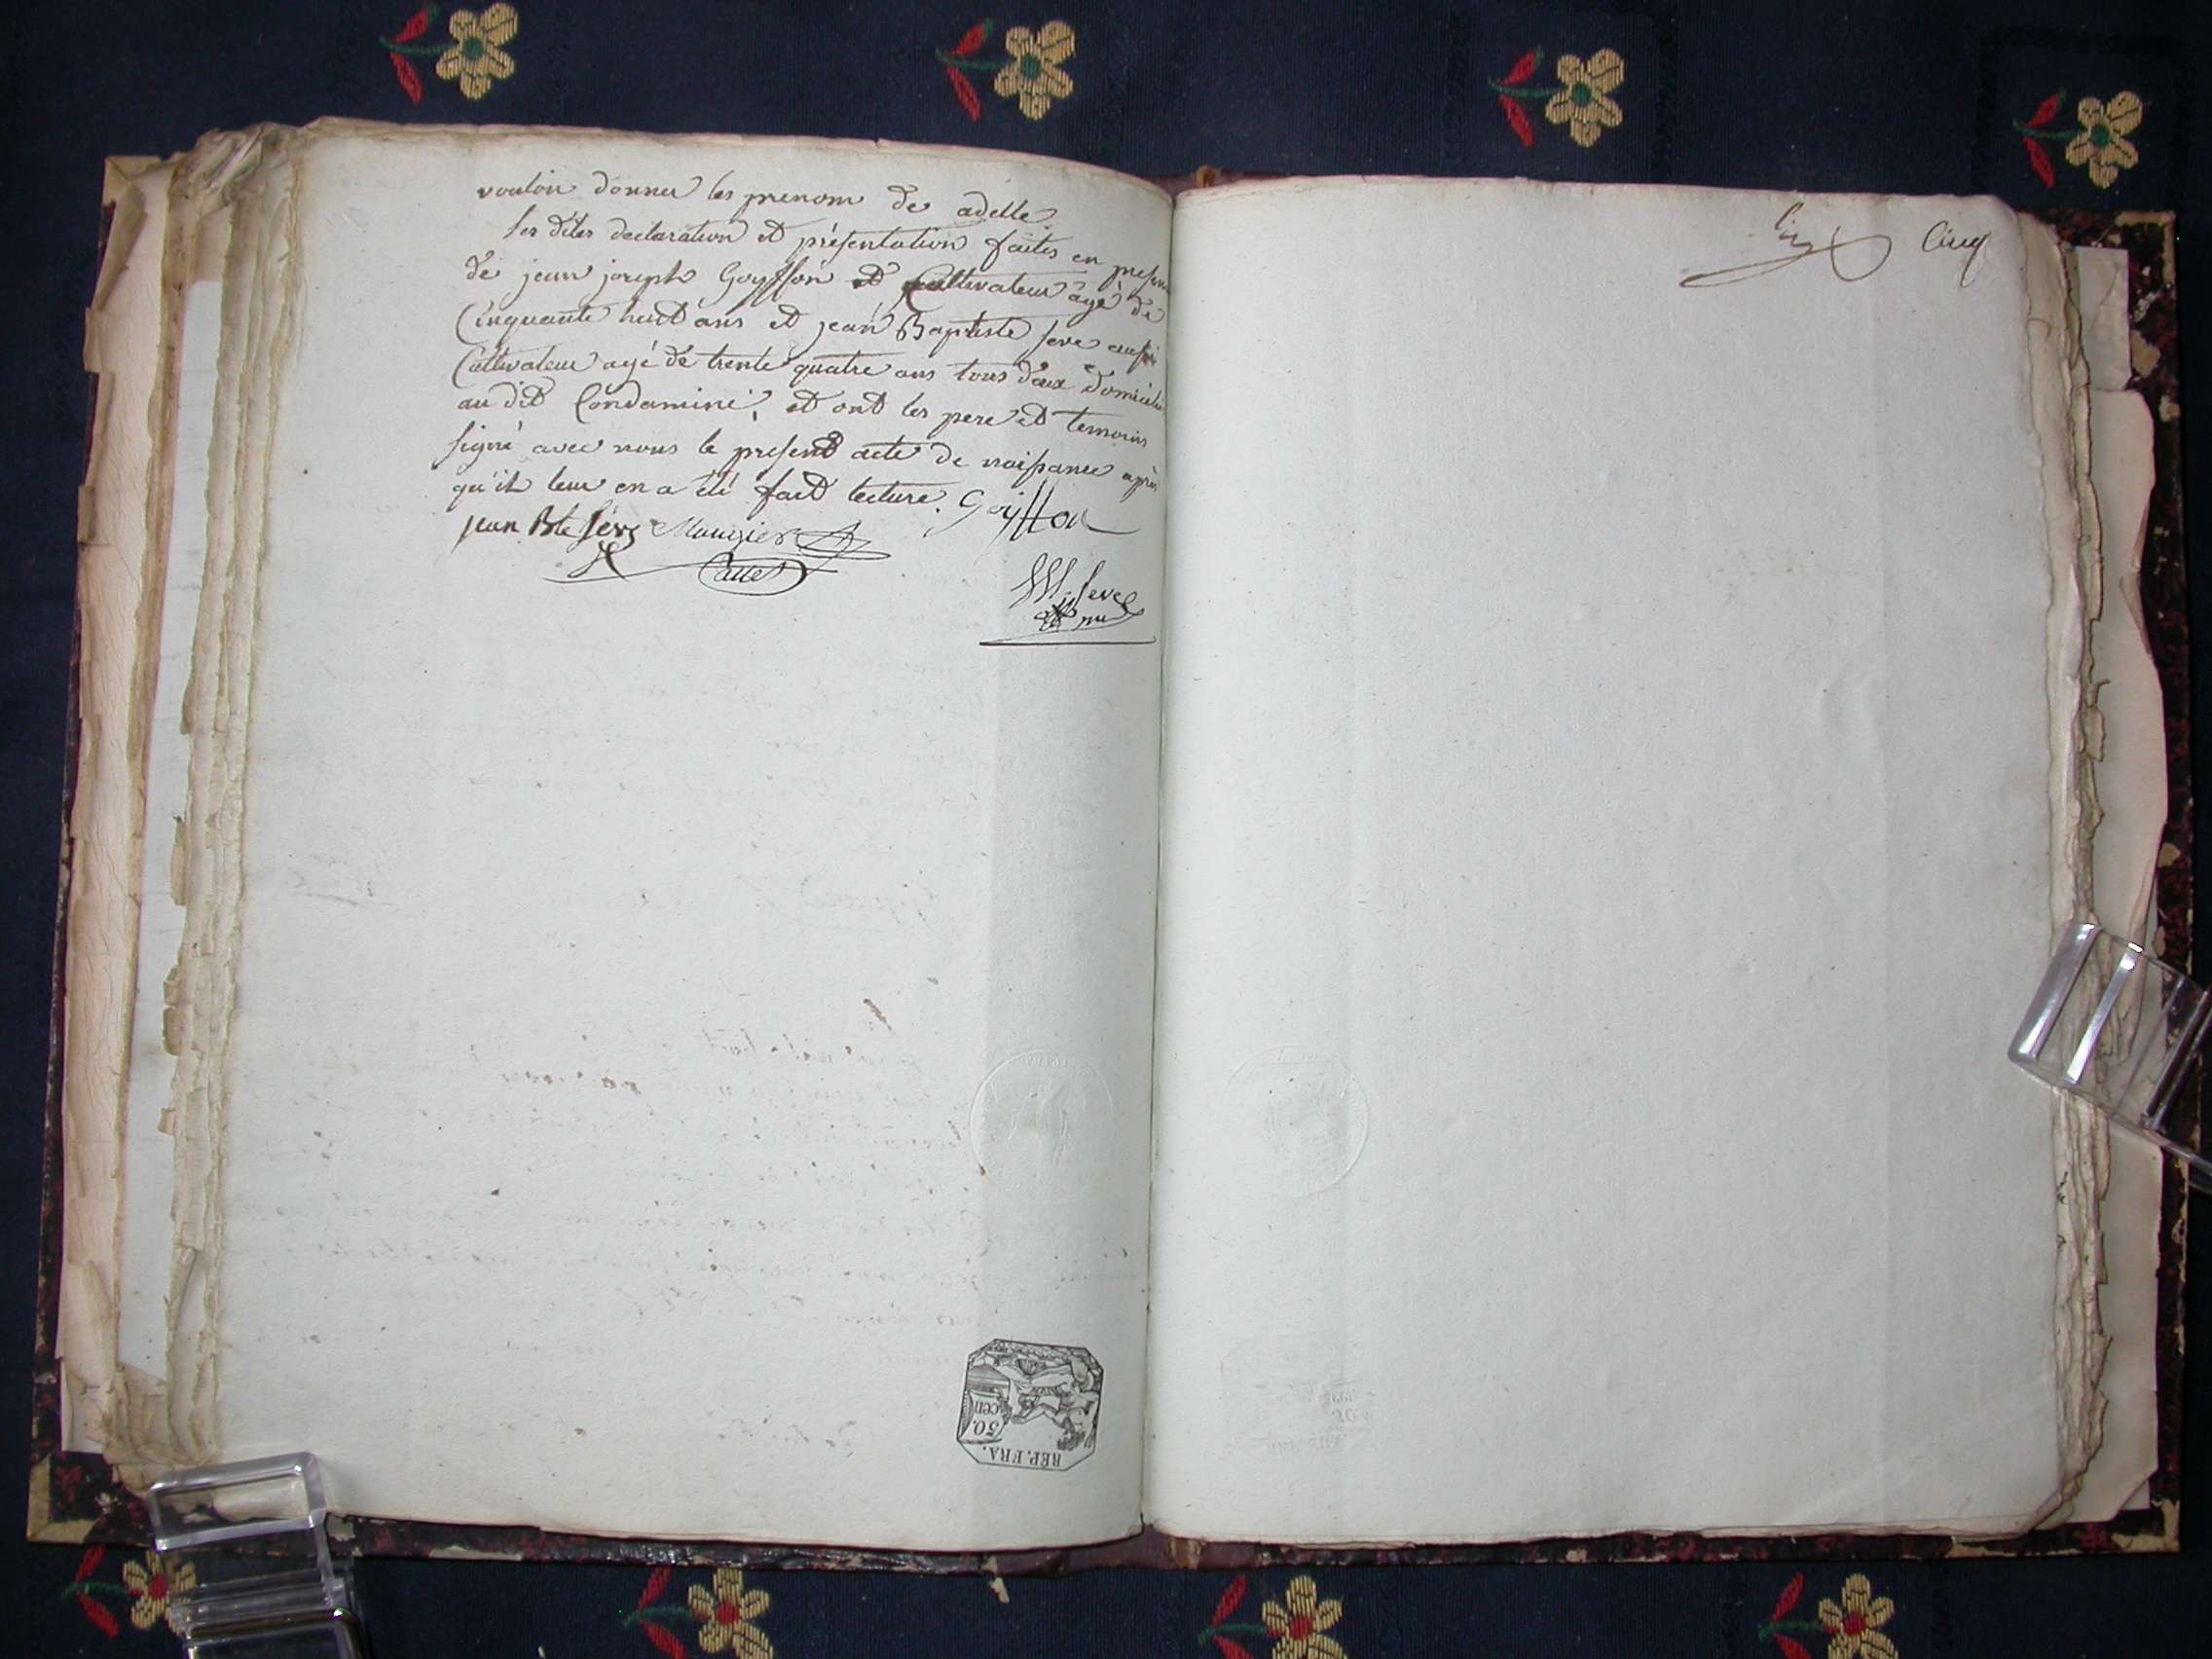 vouloir donner les prenom de adelle
les dites declaration et présentation faites en presen
de jean joseph Goyffon et Cultivateur âgé de
Cinquante huit ans et jean Baptiste seve aussi
Cultivateur agé de trente quatre ans tous deux domicilié
au dit Condamine, et ont les pere et temoins
signé avec nous le present acte de naissance après
qu'il leur en a été fait lecture. Goyffon
jean Bte Sève Maugier
seve
Cinq
50.
cen
REP. FRA.